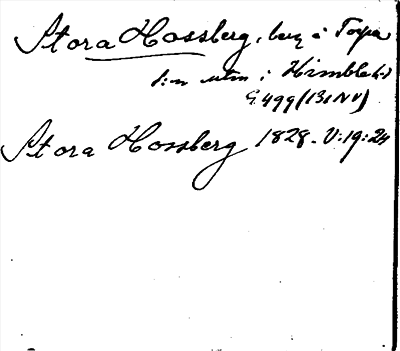 Stora Hossberg, berg å Torpa
s:n utm i Himble hd
G. 499 (13 i NV)
Stora Hossberg 1828. V:19:24